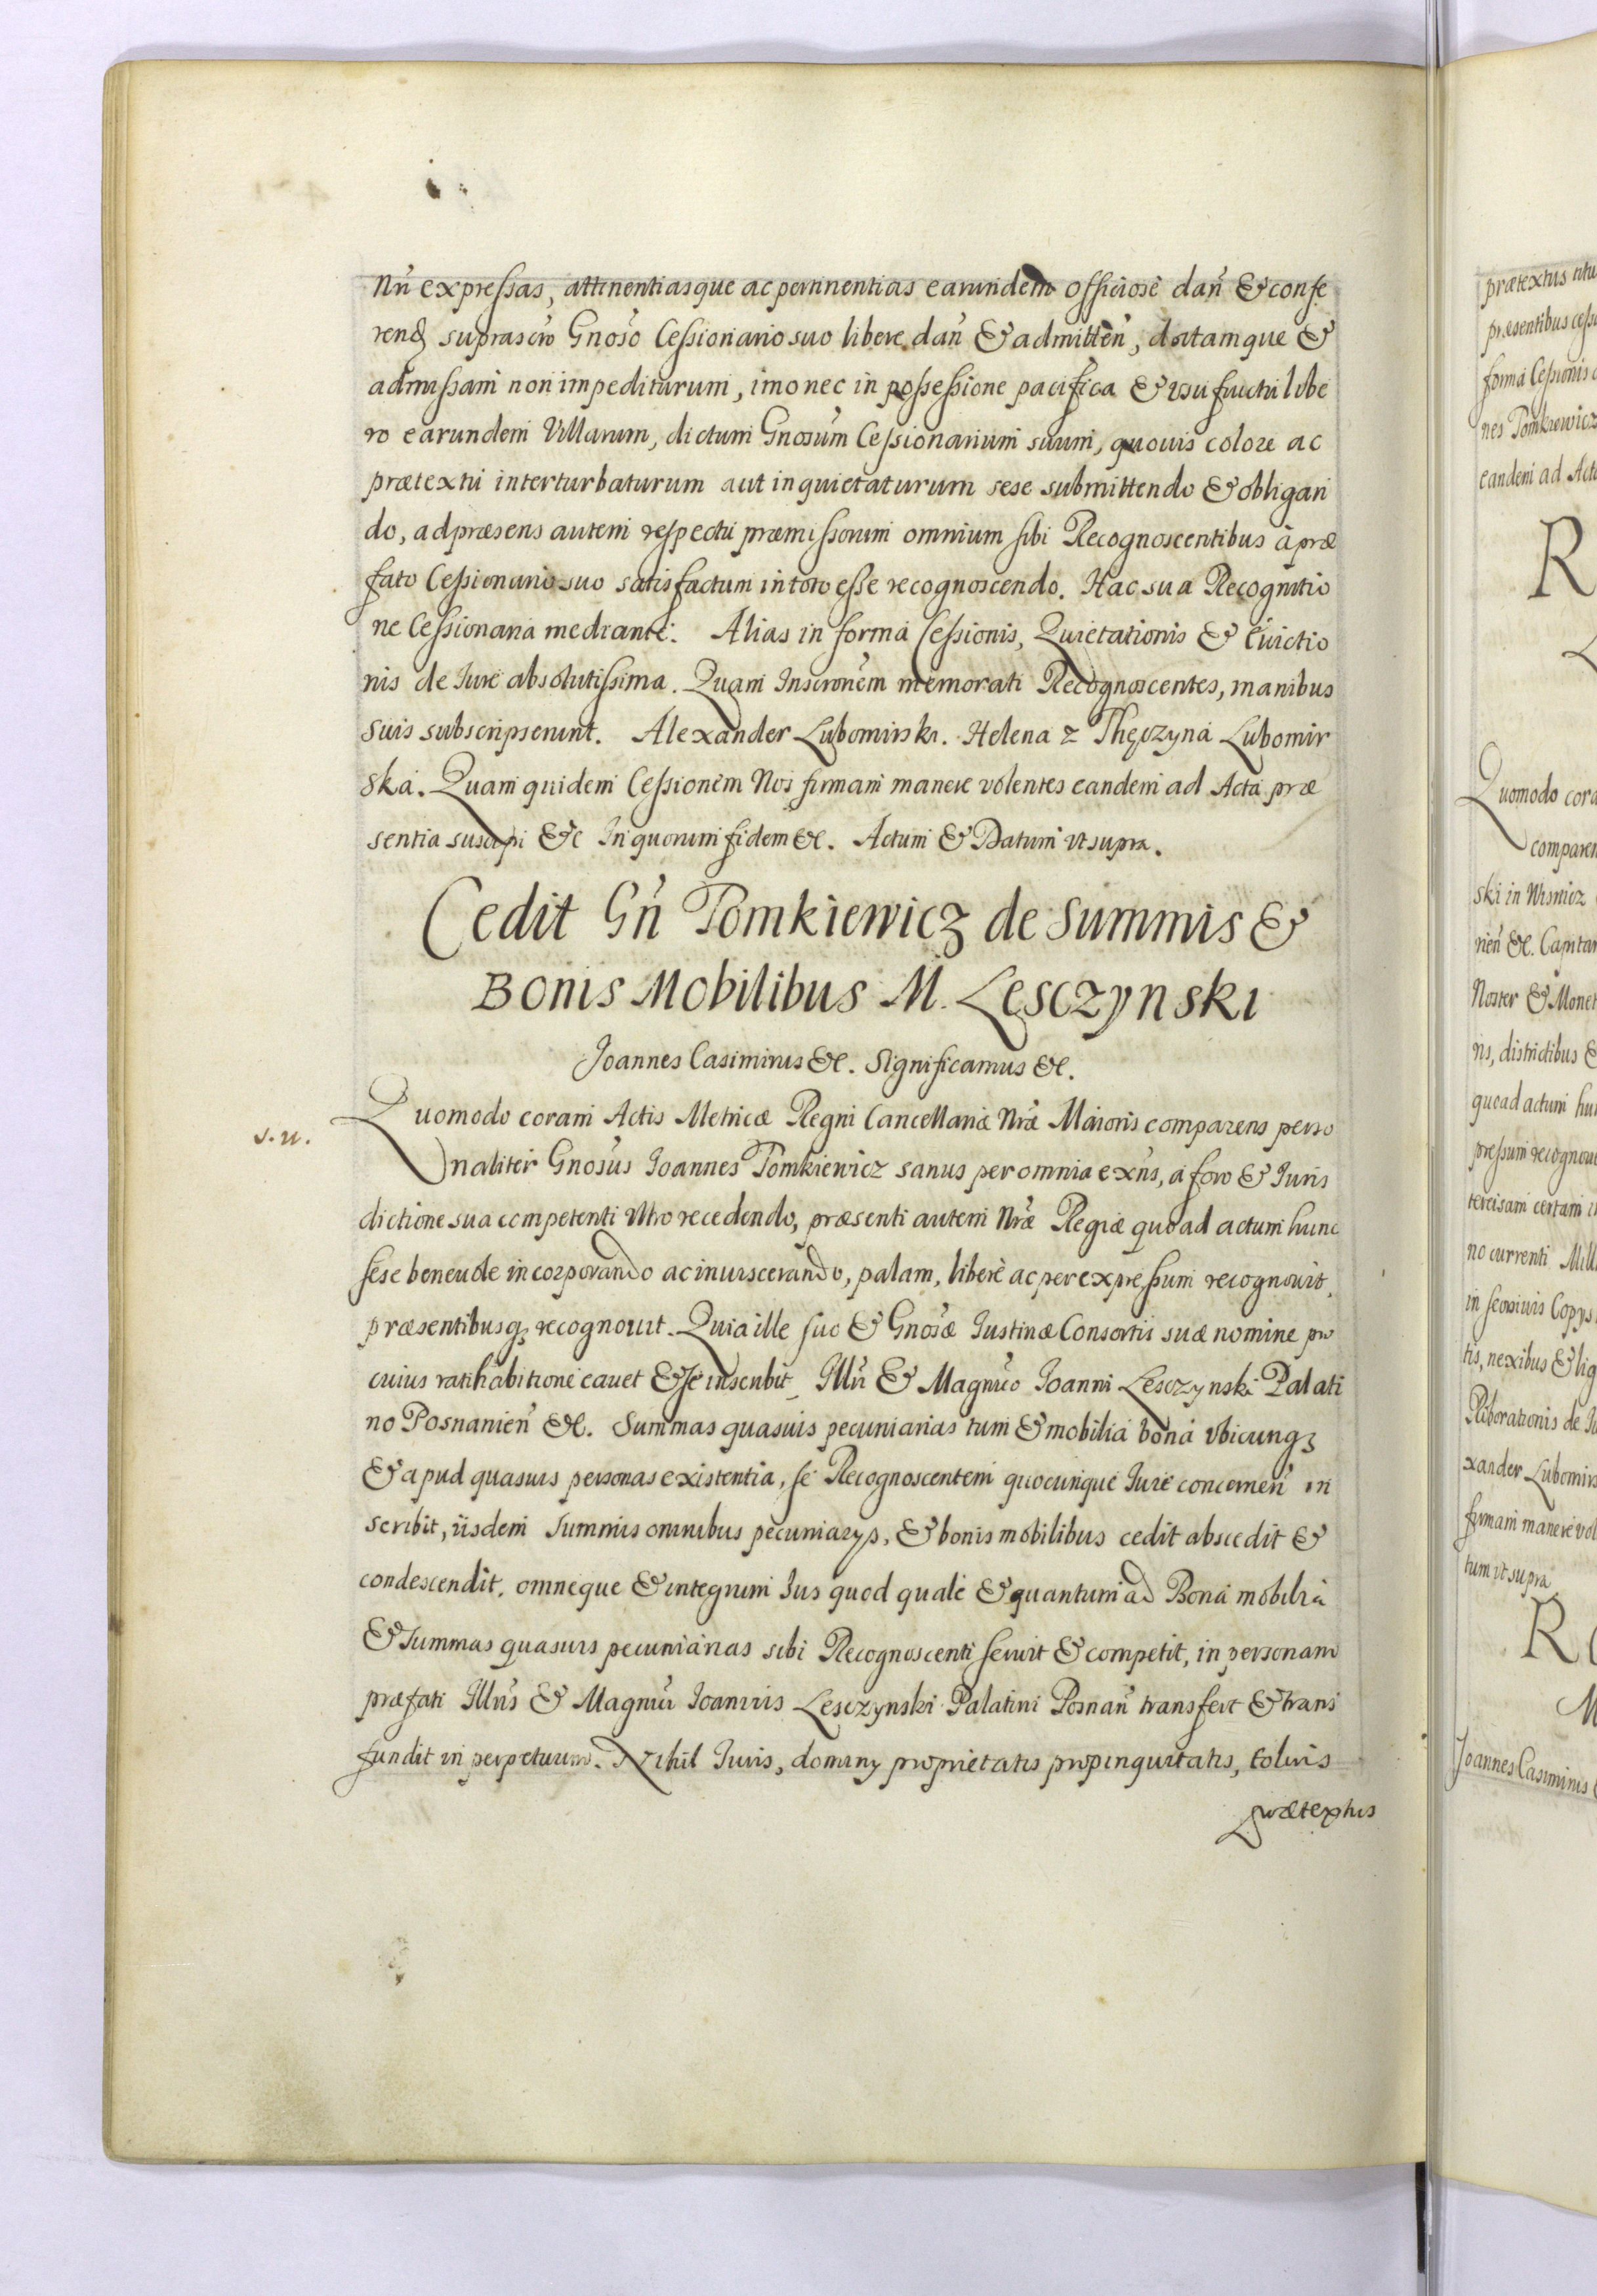 Nn̄ expressas, attinentiasque ac pertinentias earundem officiosè dan̄ & confe
rend suprascrō Gnosō Cessionario suo liberè dan̄ & admitten̄, datamque &
admissam non impediturum, imo nec in possessione pacifica & usufructu libe
ro earundem Villarum, dictum Gnosum Cessionarium suum, quouis colore ac
prætextu interturbaturum aut inquietaturum sese submittendo & obligan
do, ad præsens autem respectu præmissorum omnium sibi Recognoscentibus à præ
fato Cessionario suo satisfactum in toto esse recognoscendo. Hac sua Recognitio
ne Cessionaria mediante. Alias in forma Cessionis, Quietationis & Euictio
nis de Iure absolutissima. Quam Inscronem memorati Recognoscentes, manibus
suis subscripserunt. Alexander Lubomirski. Helena z Thęczyna Lubomir
ska. Quam quidem Cessionem Nos firmam manere volentes eandem ad Acta præ
sentia suscepi &c In quorum fidem &c. Actum & Datum vt supra.
Cedit Gn̄ Tomkiewicz de Summis &
Bonis Mobilibus M. Lesczynski
Joannes Casimirus &c. Significamus &c.
s. n.
Quomodo coram Actis Metricæ Regni Cancellariæ Nrǣ Maioris comparens perso
naliter Gnosus Joannes Tomkiewicz sanus per omnia exn̄s, a foro & Iuris
dictione sua competenti vltro recedendo, præsenti autem Nrǣ Regiæ quo ad actum hunc
sese beneuole incorporando ac inuiscerando, palam, liberè ac per expressum recognouit,
præsentibusq; recognouit. Quia ille suo & Gnosæ Iustinæ Consortis suæ nomine pro
cuius ratihabitione cauet & se inscribit, Illri & Magnico Joanni Lesczynski Palati
no Posnanien̄ &c. Summas quasuis pecuniarias tum & mobilia bona vbicunq;
& apud quasuis personas existentia, se Recognoscentem quocunque Iure concernen̄ in
scribit, iisdem summis omnibus pecuniarys, & bonis mobilibus cedit abscedit &
condescendit, omneque & integrum Ius quod quale & quantum ad Bona mobilia
& summas quasuis pecuniarias sibi Recognoscenti seruit & competit, in personam
præfati Illris & Magnici Joannis Lesczynski Palatini Posnan̄ transfert & trans
fundit in perpetuum. Nihil Iuris, dominy proprietatis propinquitatis, coloris
prætextus
prætextus titu
præsentibus cess
forma Cessionis
nes Tomkiewicz
eandem ad Acta
R
Quomodo cora
comparen
ski in Wisnicz
nien̄ &c. Capitan
Noster & Monet
ris, districtibus &
quoad actum hu
pressum recognoui
no currenti Mill
tis, nexibus & lig
xander Lubomirs
firmam manere vol
tum vt supra
R
M
Joannes Casimirus